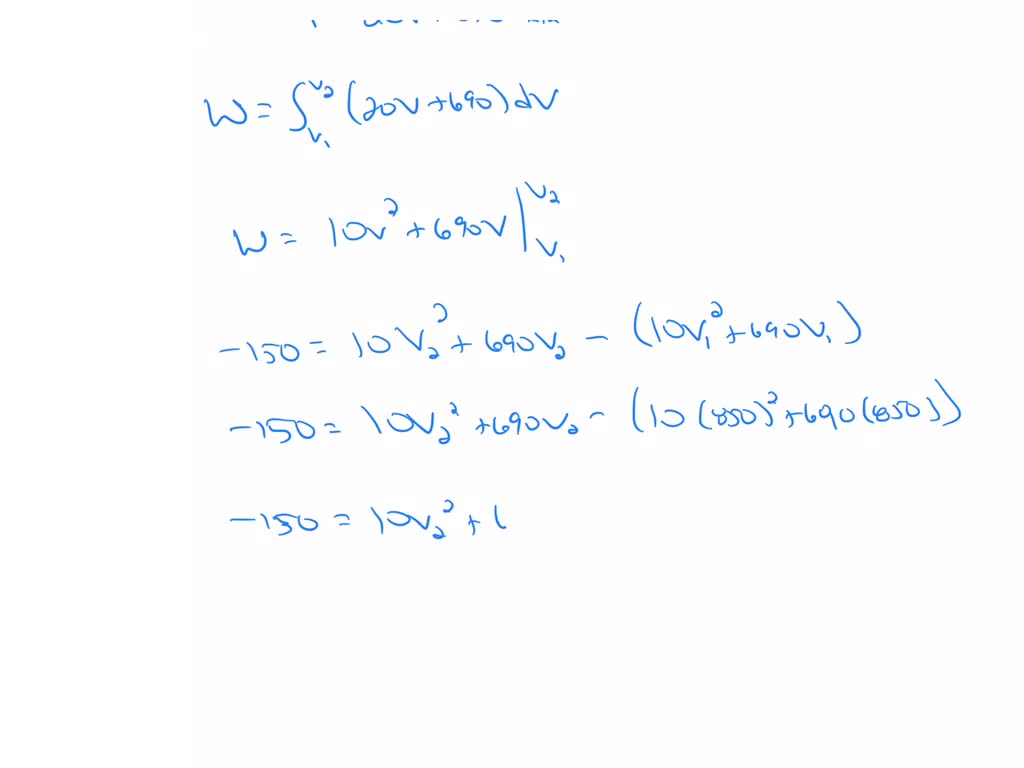 W = ∫_{V₁}^{V₂} (20V + 690) dV
W = 10V² + 690V |_{V₁}^{V₂}
-150 = 10V₂² + 690V₂ - (10V₁² + 690V₁)
-150 = 10V₂² + 690V₂ - (10(850)² + 690(850))
-150 = 10V₂² + (